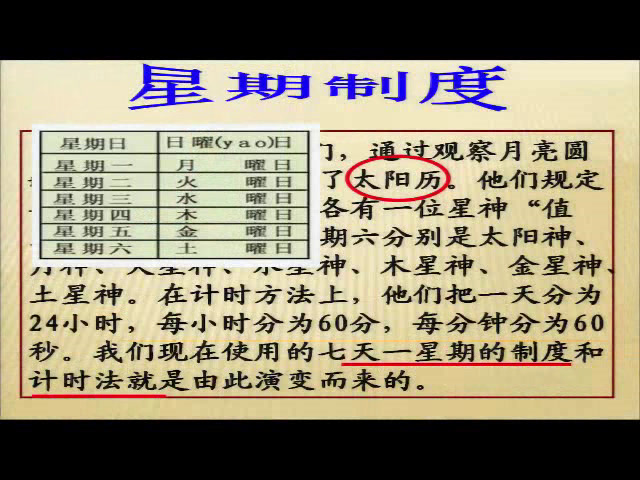 星期制度
星期日 日曜(yao)日
星期一 月曜日
星期二 火曜日
星期三 水曜日
星期四 木曜日
星期五 金曜日
星期六 土曜日
，通过观察月亮圆
了太阳历。他们规定
各有一位星神“值
期六分别是太阳神、
月神、火星神、水星神、木星神、金星神、
土星神。在计时方法上，他们把一天分为
24小时，每小时分为60分，每分钟分为60
秒。我们现在使用的七天一星期的制度和
计时法就是由此演变而来的。